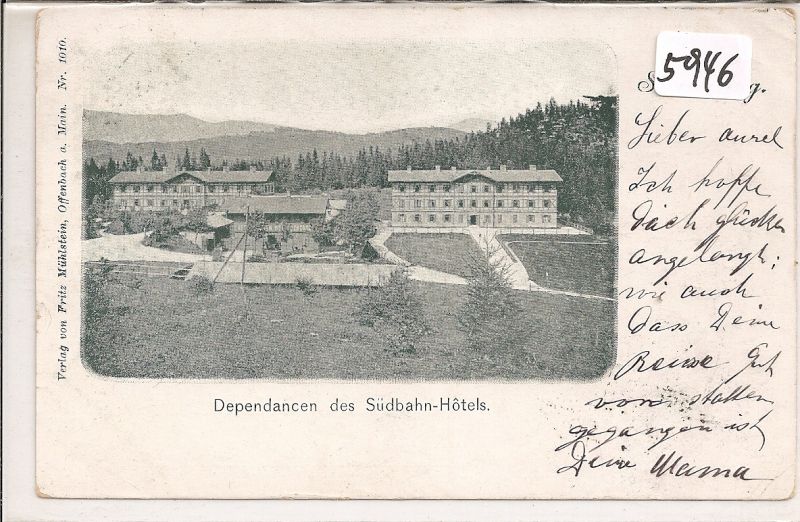 Verlag von Fritz Mühlstein, Offenbach a. Main. Nr. 1010.
5946
S g.
Lieber aurel
Ich hoffe
dich
angelangt;
wie auch
dass Deine
Reise Gut
von statten
gegangen ist
Deine Mama
Dependancen des Südbahn-Hôtels.